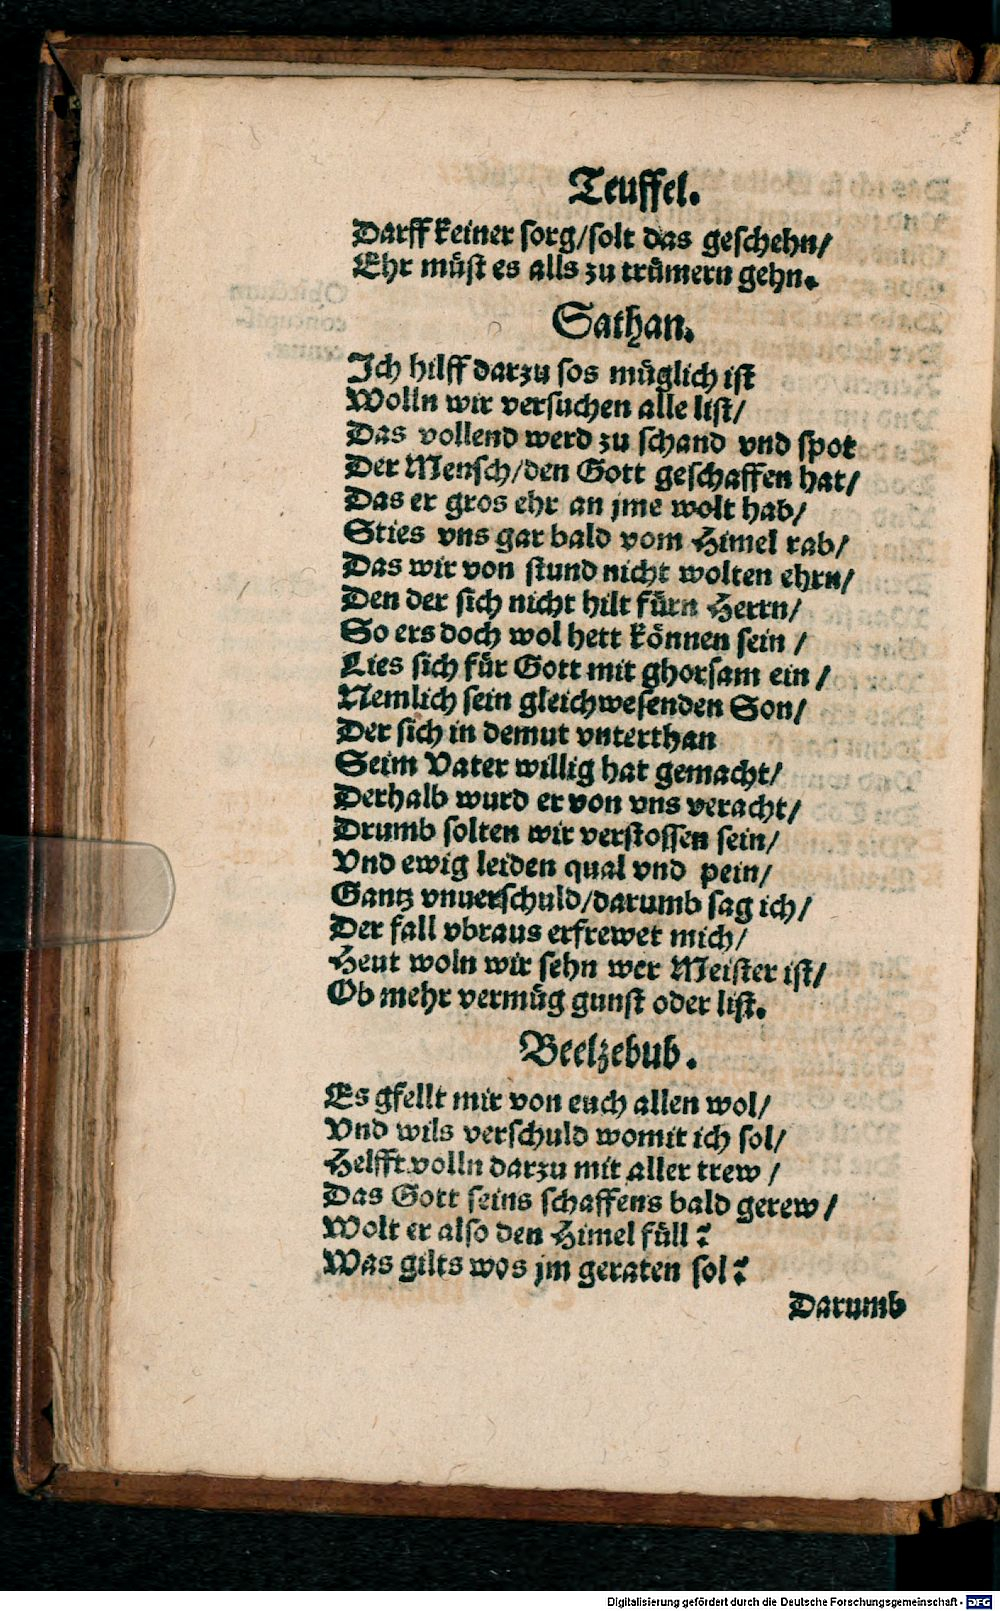 Teuffel.
Darff keiner sorg/solt das geschehn/
Ehr müst es alls zu trümern gehn.
Sathan.
Ich hilff darzu sos müglich ist
Wolln wir versuchen alle list/
Das vollend werd zu schand vnd spot
Der Mensch/den Gott geschaffen hat/
Das er gros ehr an jme wolt hab/
Sties vns gar bald vom Himel rab/
Das wir von stund nicht wolten ehrn/
Den der sich nicht hilt fürn Herrn/
So ers doch wol hett können sein /
Lies sich für Gott mit ghorsam ein /
Nemlich sein gleichwesenden Son/
Der sich in demut vnterthan
Seim Vater willig hat gemacht/
Derhalb wurd er von vns veracht/
Drumb solten wir verstossen sein/
Vnd ewig leiden qual vnd pein/
Gantz vnuerschuld/darumb sag ich/
Der fall vbraus erfrewet mich/
Heut woln wir sehn wer Meister ist/
Ob mehr vermüg gunst oder list.
Beelzebub.
Es gfellt mir von euch allen wol/
Vnd wils verschuld womit ich sol/
Helfft volln darzu mit aller trew /
Das Gott seins schaffens bald gerew /
Wolt er also den Himel füll?
Was gilts wos jm geraten sol?
Darumb
Digitalisierung gefördert durch die Deutsche Forschungsgemeinschaft - DFG